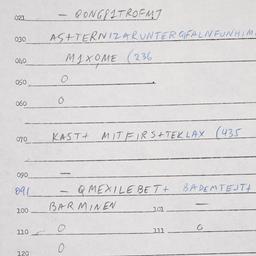 021 — QONGP1TROFMJ
030 ASTTERNIZARUNTERGFALNFUNHIM
040 M1XOME (236
050 O
060 O
070 KAST+ MITFIRS+TEKLAX (435
090 —
091 — QMEXILEBET+ BADEMTEJT+
100 BARMINEN 101 —
110 O 111 O
120 O